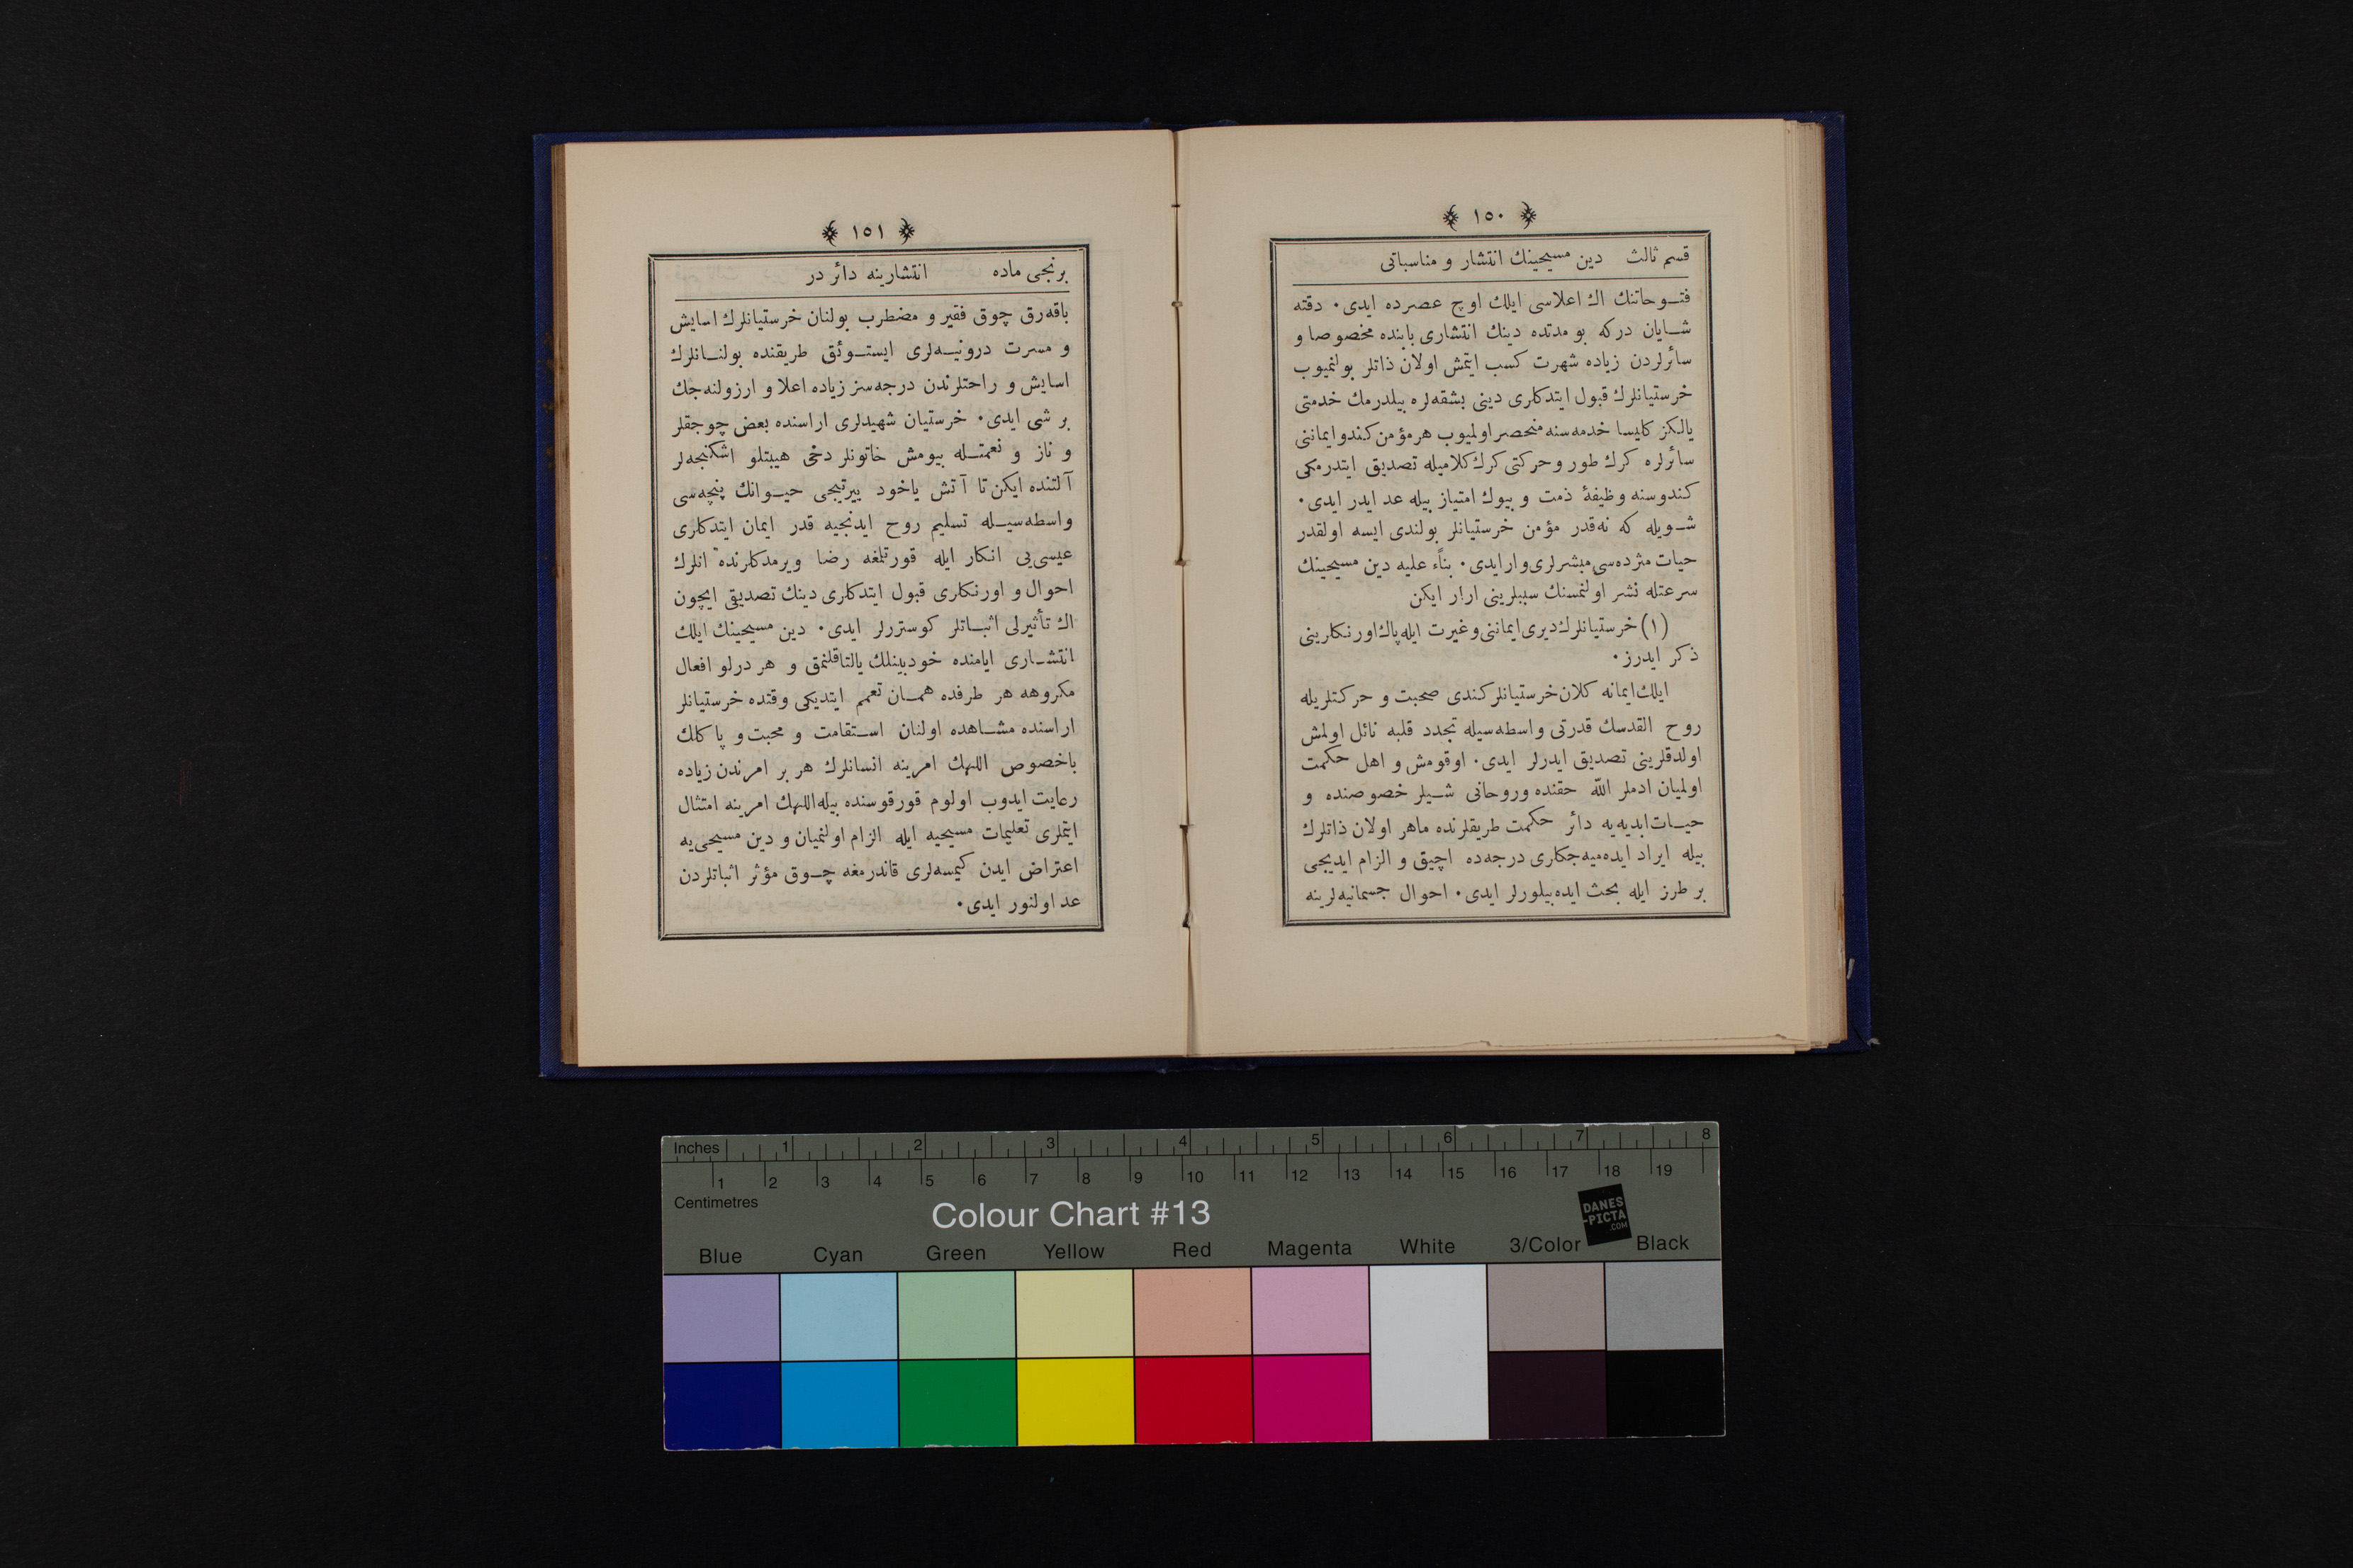 ﴿ ١٥٠ ﴾
قسم ثالث دين مسيحينك انتشار و مناسباتى
فتوحاتنك اك اعلاسى ايلك اوچ عصرده ايدى. دقته
شايان دركه بو مدتده دينك انتشارى بابنده مخصوصا و
سائرلردن زياده شهرت كسب ايتمش اولان ذاتلر بولنميوب
خرستيانلرك قبول ايتدكلرى دينى بشقه‌لره بيلدرمك خدمتى
يالكز كليسا خدمه‌سنه منحصر اولميوب هر مؤمن كندو ايماننى
سائرلره كرك طور و حركتى كرك كلاميله تصديق ايتدرمكى
كندوسنه وظيفۀ ذمت و بيوك امتياز بيله عد ايدر ايدى.
شويله كه نه‌قدر مؤمن خرستيانلر بولندى ايسه اولقدر
حيات مژده‌سى مبشرلرى وار ايدى. بناءً عليه دين مسيحينك
سرعتله نشر اولنمسنك سببلرينى ارار ايكن
(١) خرستيانلرك ديرى ايماننى و غيرت ايله پاك اورنكارينى
ذكر ايدرز.
ايلك ايمانه كلان خرستيانلر كندى صحبت و حركتلريله
روح القدسك قدرتى واسطه‌سيله تجدد قلبه نائل اولمش
اولدقلرينى تصديق ايدرلر ايدى. اوقومش و اهل حكمت
اولميان ادملر اللّٰه حقنده و روحانى شيلر خصوصنده و
حيات ابديه‌يه دائر حكمت طريقلرنده ماهر اولان ذاتلرك
بيله ايراد ايده‌ميه‌جكلرى درجه‌ده اچيق و الزام ايديجى
بر طرز ايله بحث ايده‌بيلورلر ايدى. احوال جسمانيه‌لرينه
﴿ ١٥١ ﴾
برنجى ماده انتشارينه دائر در
باقه‌رق چوق فقير و مضطرب بولنان خرستيانلرك اسايش
و مسرت درونيه‌لرى ايستوئق طريقنده بولنانلرك
اسايش و راحتلرندن درجه‌سز زياده اعلا و ارزولنه‌جك
بر شى ايدى. خرستيان شهيدلرى اراسنده بعض چوجقلر
و ناز و نعمتله بيومش خاتونلر دخى هيبتلو اشكنجه‌لر
آلتنده ايكن تا آتش ياخود ييرتيجى حيوانك پنچه‌سى
واسطه‌سيله تسليم روح ايدنجيه قدر ايمان ايتدكلرى
عيسى‌يى انكار ايله قورتلمغه رضا ويرمدكلرنده انلرك
احوال و اورنكلرى قبول ايتدكلرى دينك تصديقى ايچون
اك تأثيرلى اثباتلر كوستررلر ايدى. دين مسيحينك ايلك
انتشارى ايامنده خودبينلك يالتاقلنمق و هر درلو افعال
مكروهه هر طرفده همان تعمم ايتديكى وقتده خرستيانلر
اراسنده مشاهده اولنان استقامت و محبت و پاكلك
باخصوص اللهك امرينه انسانلرك هر بر امرندن زياده
رعايت ايدوب اولوم قورقوسنده بيله اللهك امرينه امتثال
ايتملرى تعليمات مسيحيه ايله الزام اولنميان و دين مسيحى‌يه
اعتراض ايدن كيمسه‌لرى قاندرمغه چوق مؤثر اثباتلردن
عد اولنور ايدى.
Inches 1 2 3 4 5 6 7 8
1 2 3 4 5 6 7 8 9 10 11 12 13 14 15 16 17 18 19
Centimetres
Colour Chart #13
DANES
-PICTA
.COM
Blue Cyan Green Yellow Red Magenta White 3/Color Black